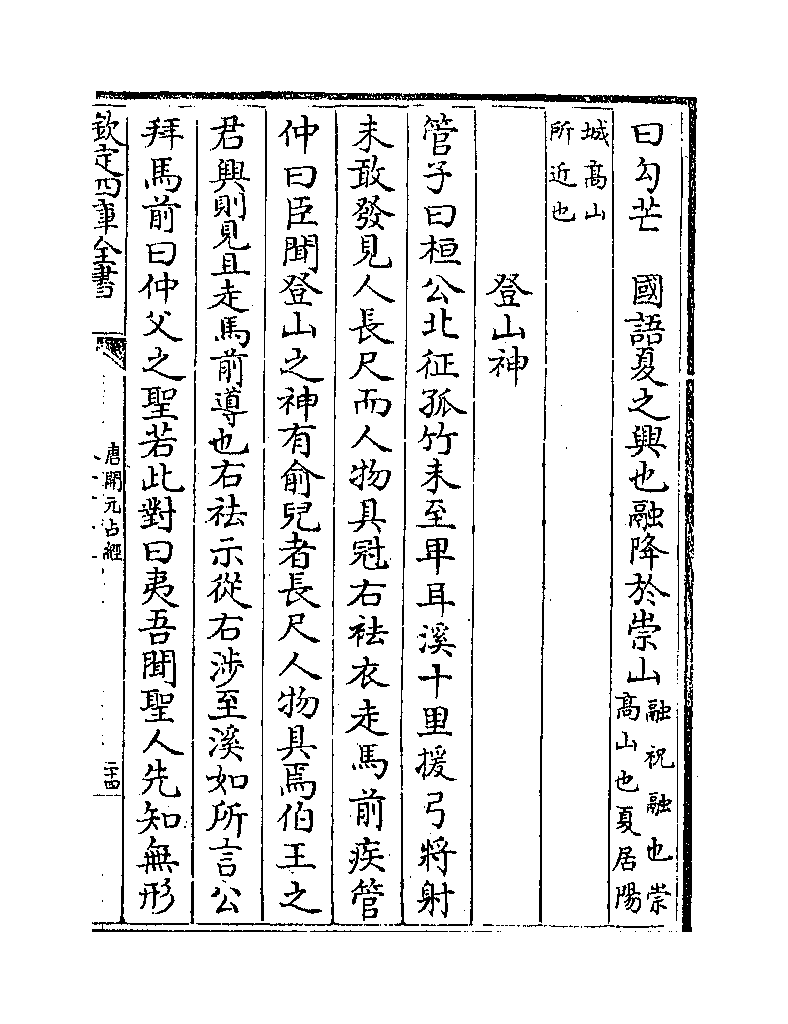 曰勾芒　國語夏之興也融降於崇山融祝融也崇高山也夏居陽
城高山所近也
登山神
管子曰桓公北征孤竹未至卑耳溪十里援弓將射
未敢發見人長尺而人物具冠右祛衣走馬前疾管
仲曰臣聞登山之神有俞兒者長尺人物具焉伯王之
君興則見且走馬前導也右祛示從右涉至溪如所言公
拜馬前曰仲父之聖若此對曰夷吾聞聖人先知無形
欽定四庫全書
唐開元占經
二十四